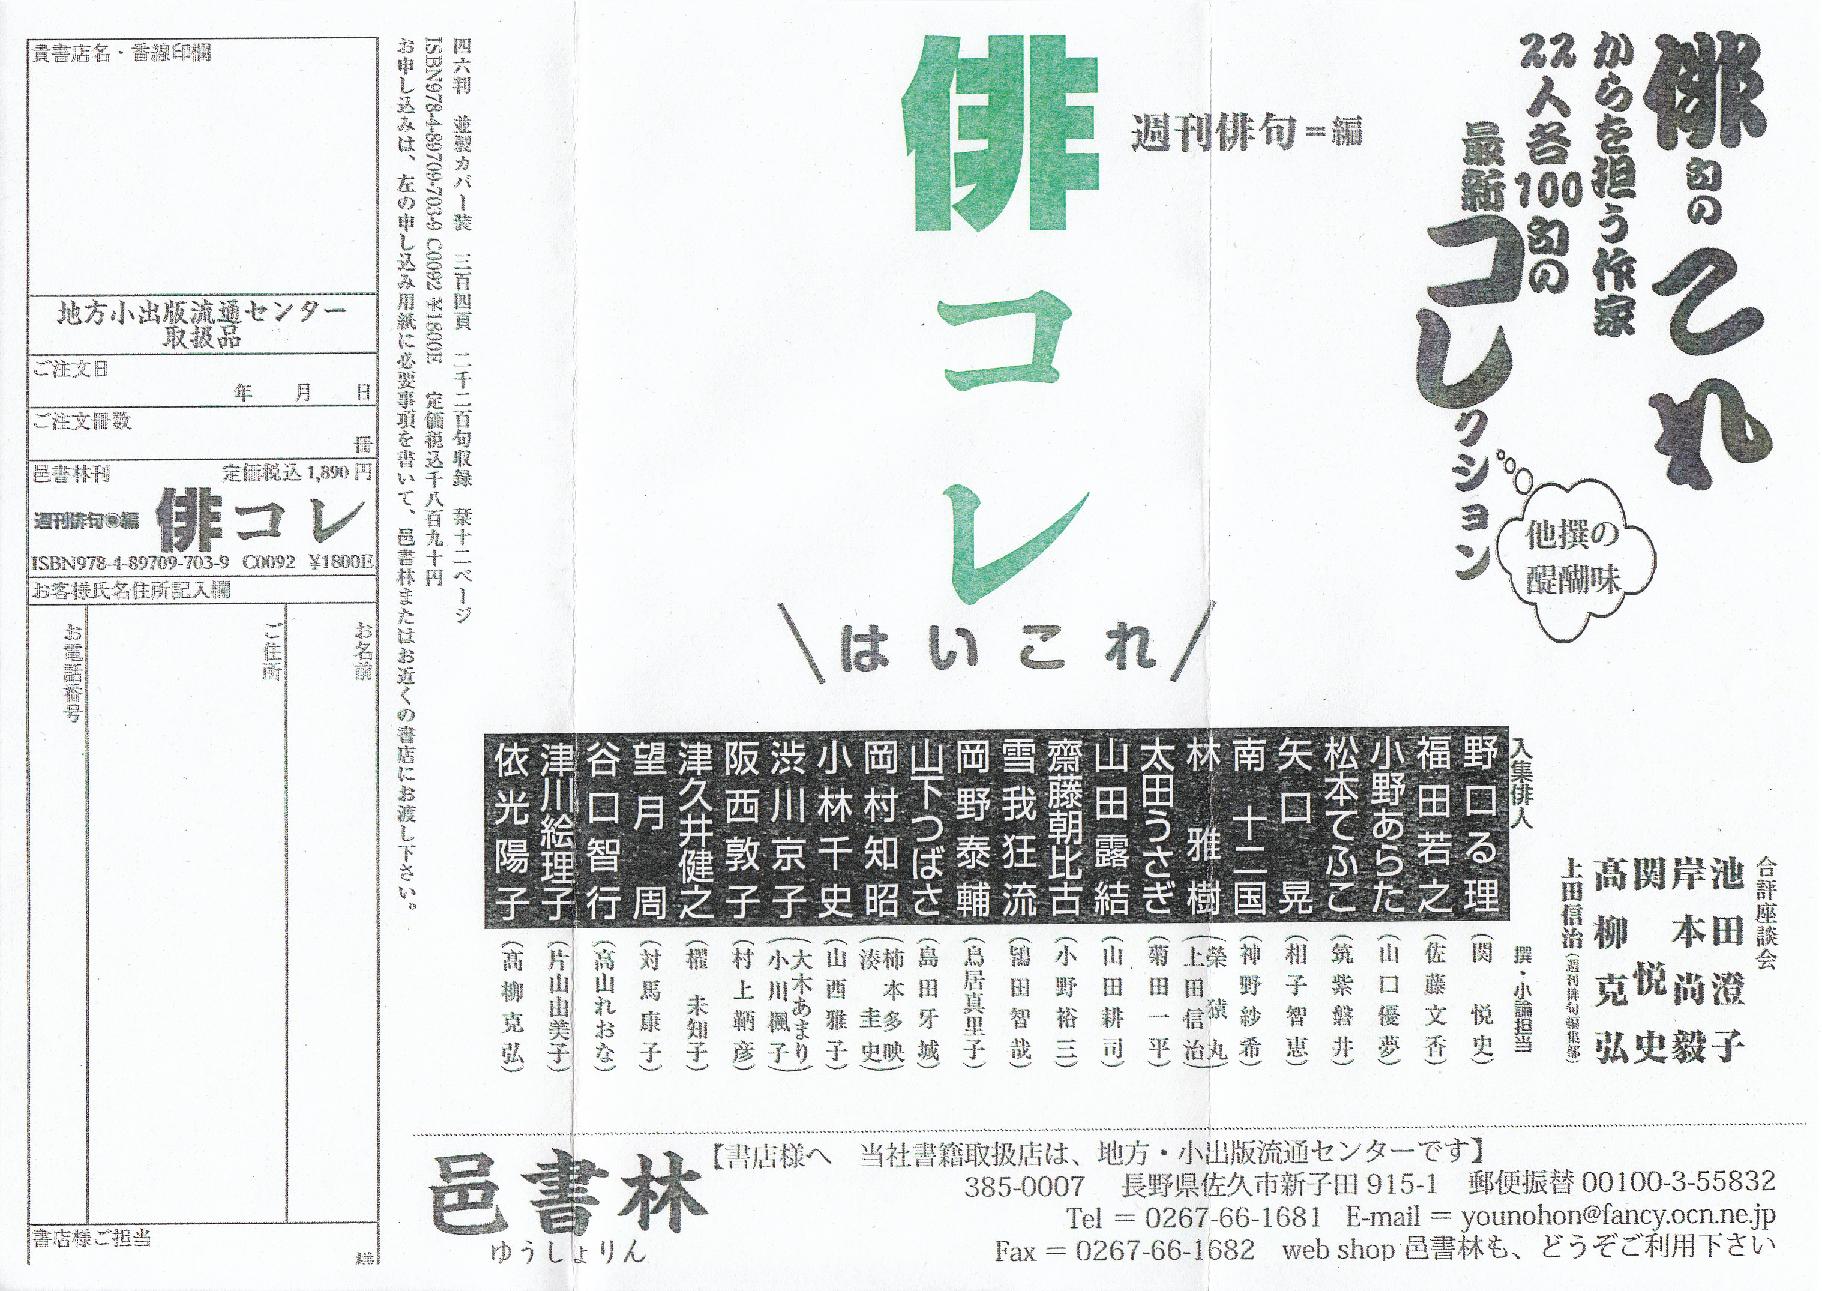 俳句の これ
からを担う作家
22人各100句の
最新コレクション
他撰の
醍醐味
週刊俳句=編
俳コレ
はいこれ
合評座談会
池田澄子
岸本尚毅
関悦史
高柳克弘
上田信治(週刊俳句編集部)
入集俳人
撰・小論担当
野口る理(関悦史)
福田若之(佐藤文香)
小野あらた(山口優夢)
松本てふこ(筑紫磐井)
矢口晃(相子智恵)
南十二国(神野紗希)
林雅樹(榮猿丸 上田信治)
太田うさぎ(菊田一平)
山田露結(山田耕司)
齋藤朝比古(小野裕三)
雪我狂流(鴇田智哉)
岡野泰輔(鳥居真里子)
山下つばさ(島田牙城)
岡村知昭(柿本多映 湊圭史)
小林千史(山西雅子)
渋川京子(大木あまり 小川楓子)
阪西敦子(村上鞆彦)
津久井健之(櫂未知子)
望月周(対馬康子)
谷口智行(高山れおな)
津川絵理子(片山由美子)
依光陽子(高柳克弘)
四六判 並製カバー装 三百四頁 二千二百句収録 栞十二ページ
ISBN978-4-89709-703-9 C0092 ¥1800E 定価税込千八百九十円
お申し込みは、左の申し込み用紙に必要事項を書いて、邑書林またはお近くの書店にお渡し下さい。
貴書店名・番線印欄
地方小出版流通センター
取扱品
ご注文日
年 月 日
ご注文冊数
冊
邑書林刊 定価税込1,890円
週刊俳句◉編 俳コレ
ISBN978-4-89709-703-9 C0092 ¥1800E
お客様氏名住所記入欄
お名前
ご住所
お電話番号
書店様ご担当
様
邑書林
ゆうしょりん
【書店様へ 当社書籍取扱店は、地方・小出版流通センターです】
385-0007 長野県佐久市新子田915-1 郵便振替00100-3-55832
Tel = 0267-66-1681 E-mail = younohon@fancy.ocn.ne.jp
Fax = 0267-66-1682 web shop 邑書林も、どうぞご利用下さい